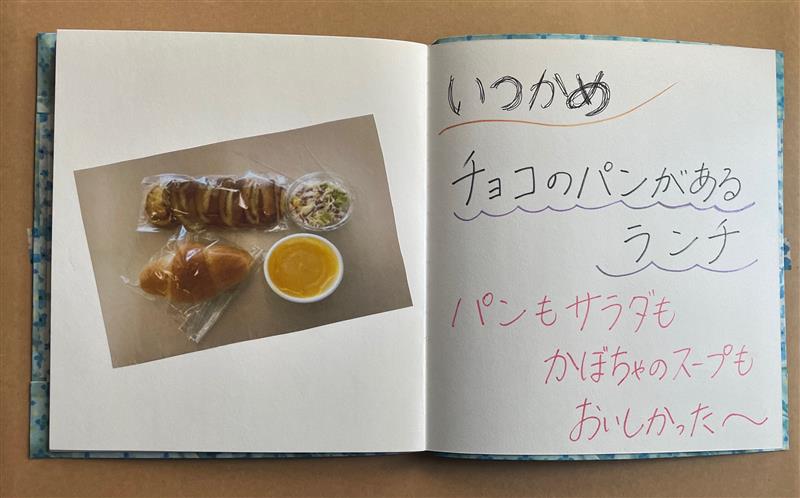 いつかめ
チョコのパンがある
ランチ
パンもサラダも
かぼちゃのスープも
おいしかった〜